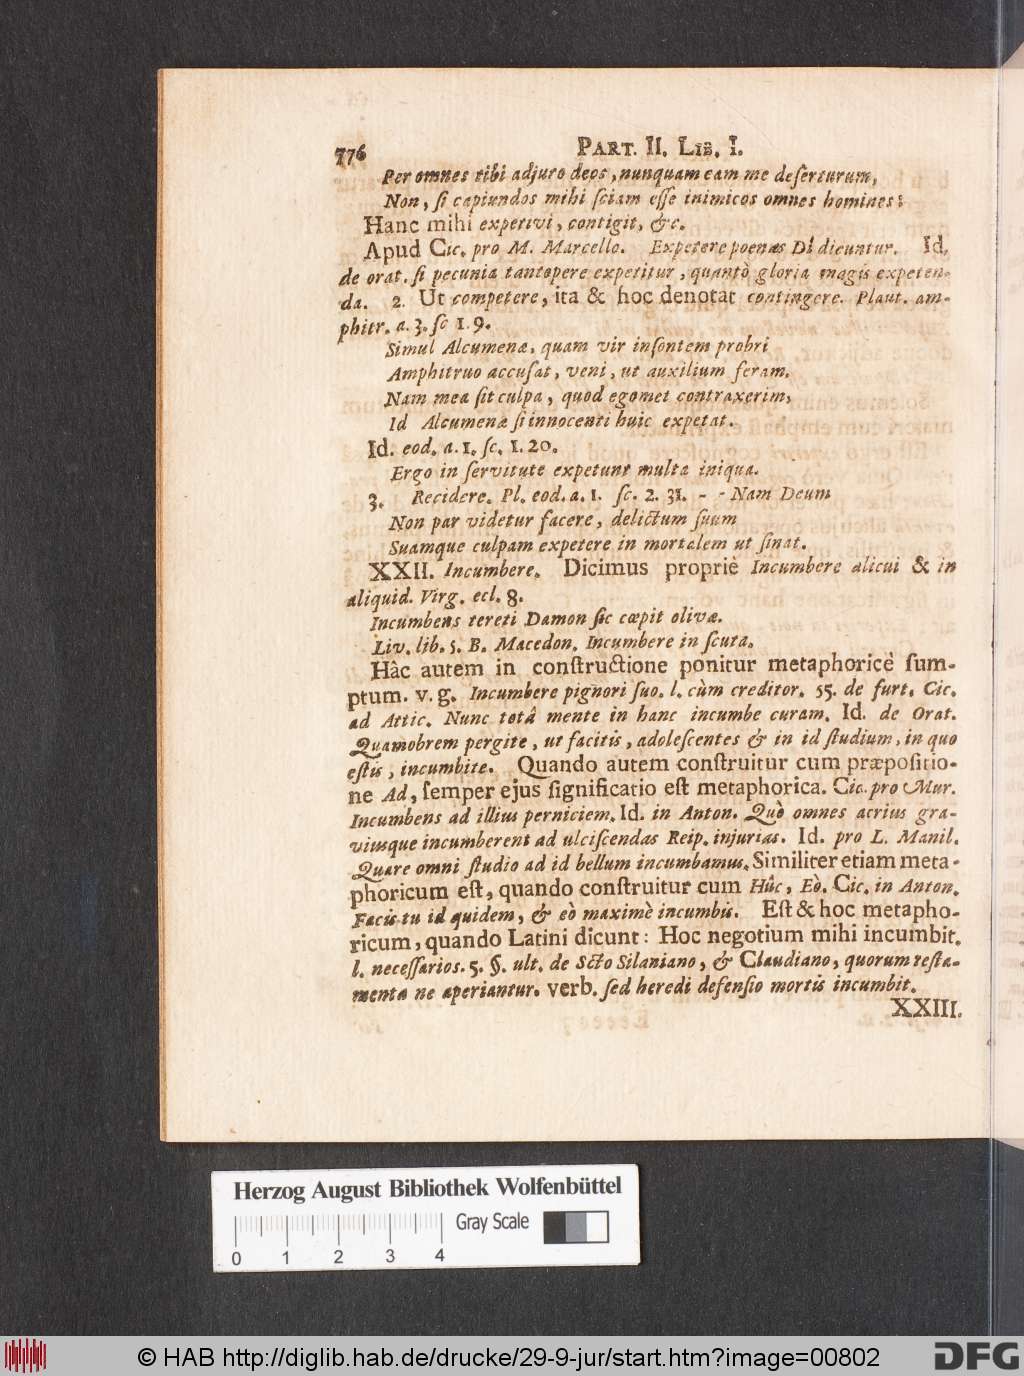 776 PART. II. LIB. I.
Per omnes tibi adjuro deos, nunquam eam me deſerturum,
Non, ſi capiundos mihi ſciam eſſe inimicos omnes homines:
Hanc mihi expetivi, contigit, &c.
Apud Cic. pro M. Marcello. Expetere poenas Dî dicuntur. Id.
de orat. ſi pecunia tantopere expetitur, quantò gloria magis expeten-
da. 2. Ut competere, ita & hoc denotat contingere. Plaut. am-
phitr. a. 3. ſc 1. 9.
Simul Alcumenæ, quam vir inſontem probri
Amphitruo accuſat, veni, ut auxilium feram.
Nam mea ſit culpa, quod egomet contraxerim,
Id Alcumenæ ſi innocenti huic expetat.
Id. eod. a. 1. ſc. 1. 20.
Ergo in ſervitute expetunt multa iniqua.
3. Recidere. Pl. eod. a. 1. ſc. 2. 31. - - Nam Deum
Non par videtur facere, delictum ſuum
Suamque culpam expetere in mortalem ut ſinat.
XXII. Incumbere. Dicimus propriè Incumbere alicui & in
aliquid. Virg. ecl. 8.
Incumbens tereti Damon ſic cœpit olivæ.
Liv. lib. 5. B. Macedon. Incumbere in ſcuta.
Hâc autem in conſtructione ponitur metaphoricè ſum-
ptum. v. g. Incumbere pignori ſuo. l. cùm creditor. 55. de furt. Cic.
ad Attic. Nunc totâ mente in hanc incumbe curam. Id. de Orat.
Quamobrem pergite, ut facitis, adoleſcentes & in id ſtudium, in quo
eſtis, incumbite. Quando autem conſtruitur cum præpoſitio-
ne Ad, ſemper ejus ſignificatio eſt metaphorica. Cic. pro Mur.
Incumbens ad illius perniciem. Id. in Anton. Quò omnes acrius gra-
viusque incumberent ad ulciſcendas Reip. injurias. Id. pro L. Manil.
Quare omni ſtudio ad id bellum incumbamus. Similiter etiam meta-
phoricum eſt, quando conſtruitur cum Hûc, Eò. Cic. in Anton.
Facis tu id quidem, & eò maximè incumbis. Eſt & hoc metapho-
ricum, quando Latini dicunt: Hoc negotium mihi incumbit.
l. neceſſarios. 5. §. ult. de Scto Silaniano, & Claudiano, quorum teſta-
menta ne aperiantur. verb. ſed heredi defenſio mortis incumbit.
XXIII.
Herzog August Bibliothek Wolfenbüttel
Gray Scale
0 1 2 3 4
© HAB http://diglib.hab.de/drucke/29-9-jur/start.htm?image=00802
DFG